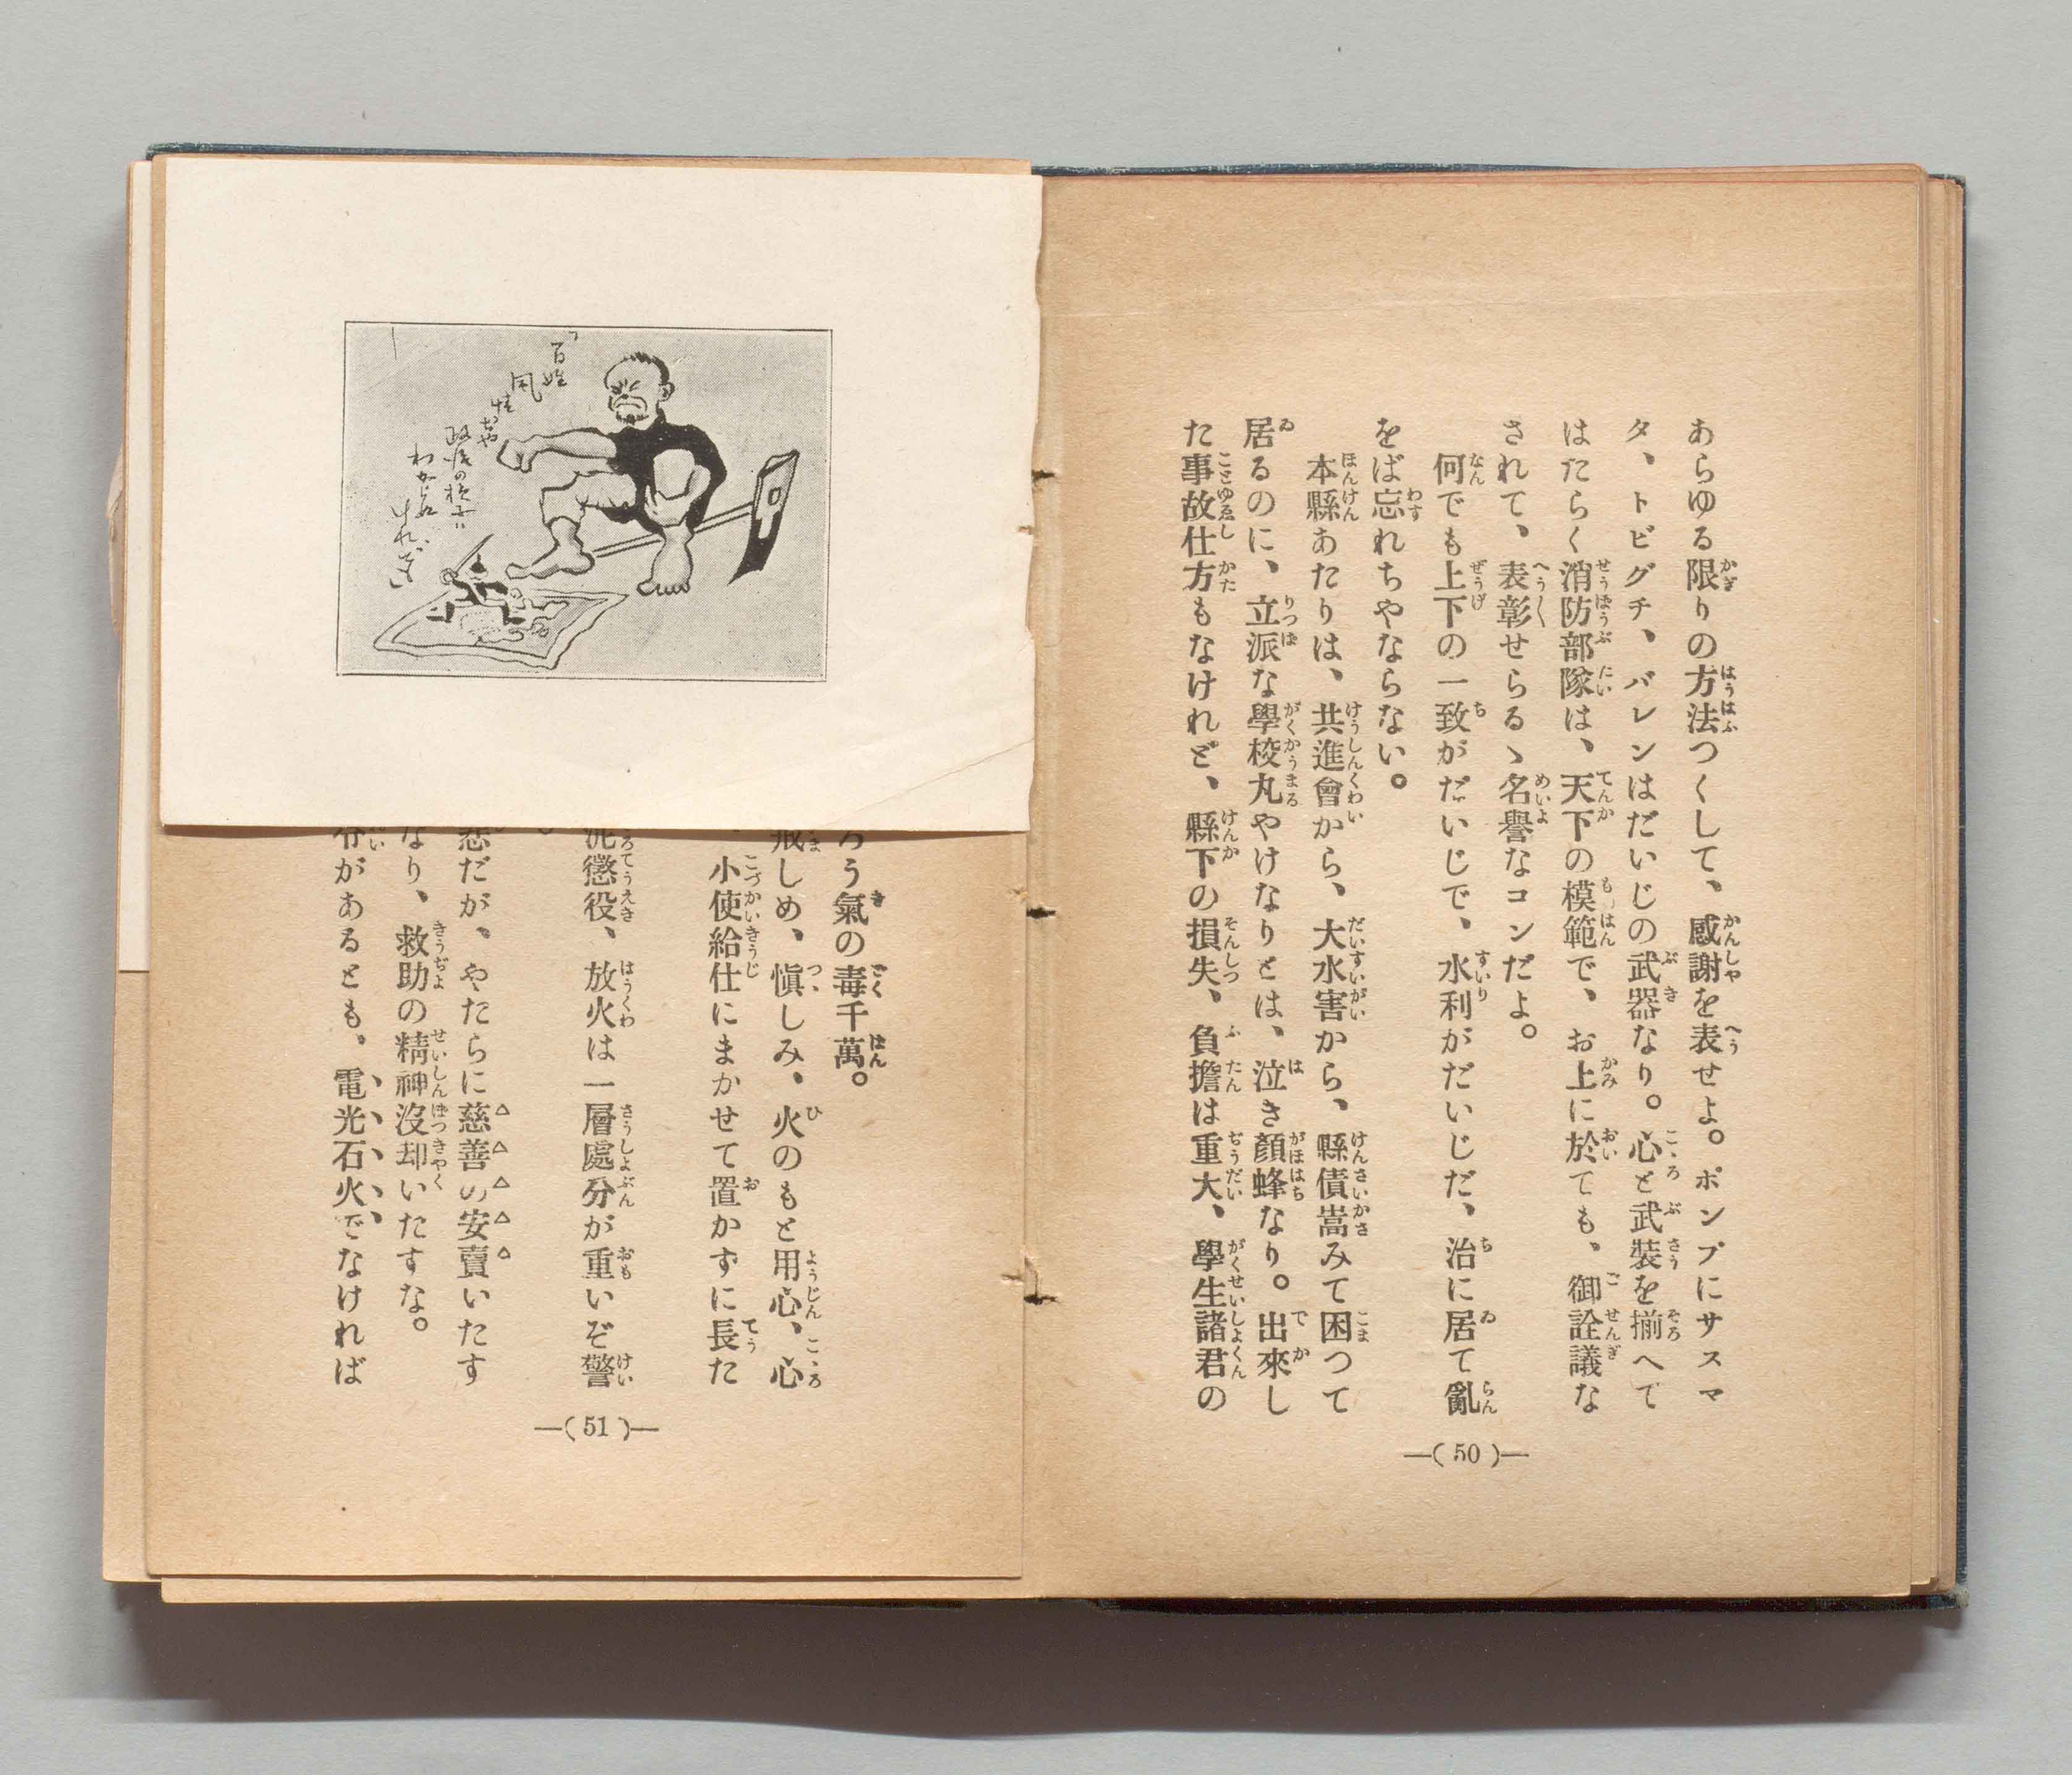 あらゆる限りの方法つくして、感謝を表せよ。ポンプにサスマ
タ、トビグチ、バレンはだいじの武器なり。心と武裝を揃へて
はたらく消防部隊は、天下の模範で、お上に於ても、御詮議な
されて、表彰せらるゝ名譽なコンだよ。
何でも上下の一致がだいじで、水利がだいじだ、治に居て亂
をば忘れちやならない。
本縣あたりは、共進會から、大水害から、縣債嵩みて困つて
居るのに、立派な學校丸やけなりとは、泣き顏蜂なり。出來し
た事故仕方もなけれど、縣下の損失、負擔は重大、學生諸君の
―( 50 )―
百姓
風
情ぢや
政治の
わからぬ
けれど
ろう氣の毒千萬。
戒しめ、愼しみ、火のもと用心、心
小使給仕にまかせて置かずに長た
懲役、放火は一層處分が重いぞ警
だが、やたらに慈善の安賣いたす
なり、救助の精神沒却いたすな。
があるとも、電光石火でなければ
―( 51 )―